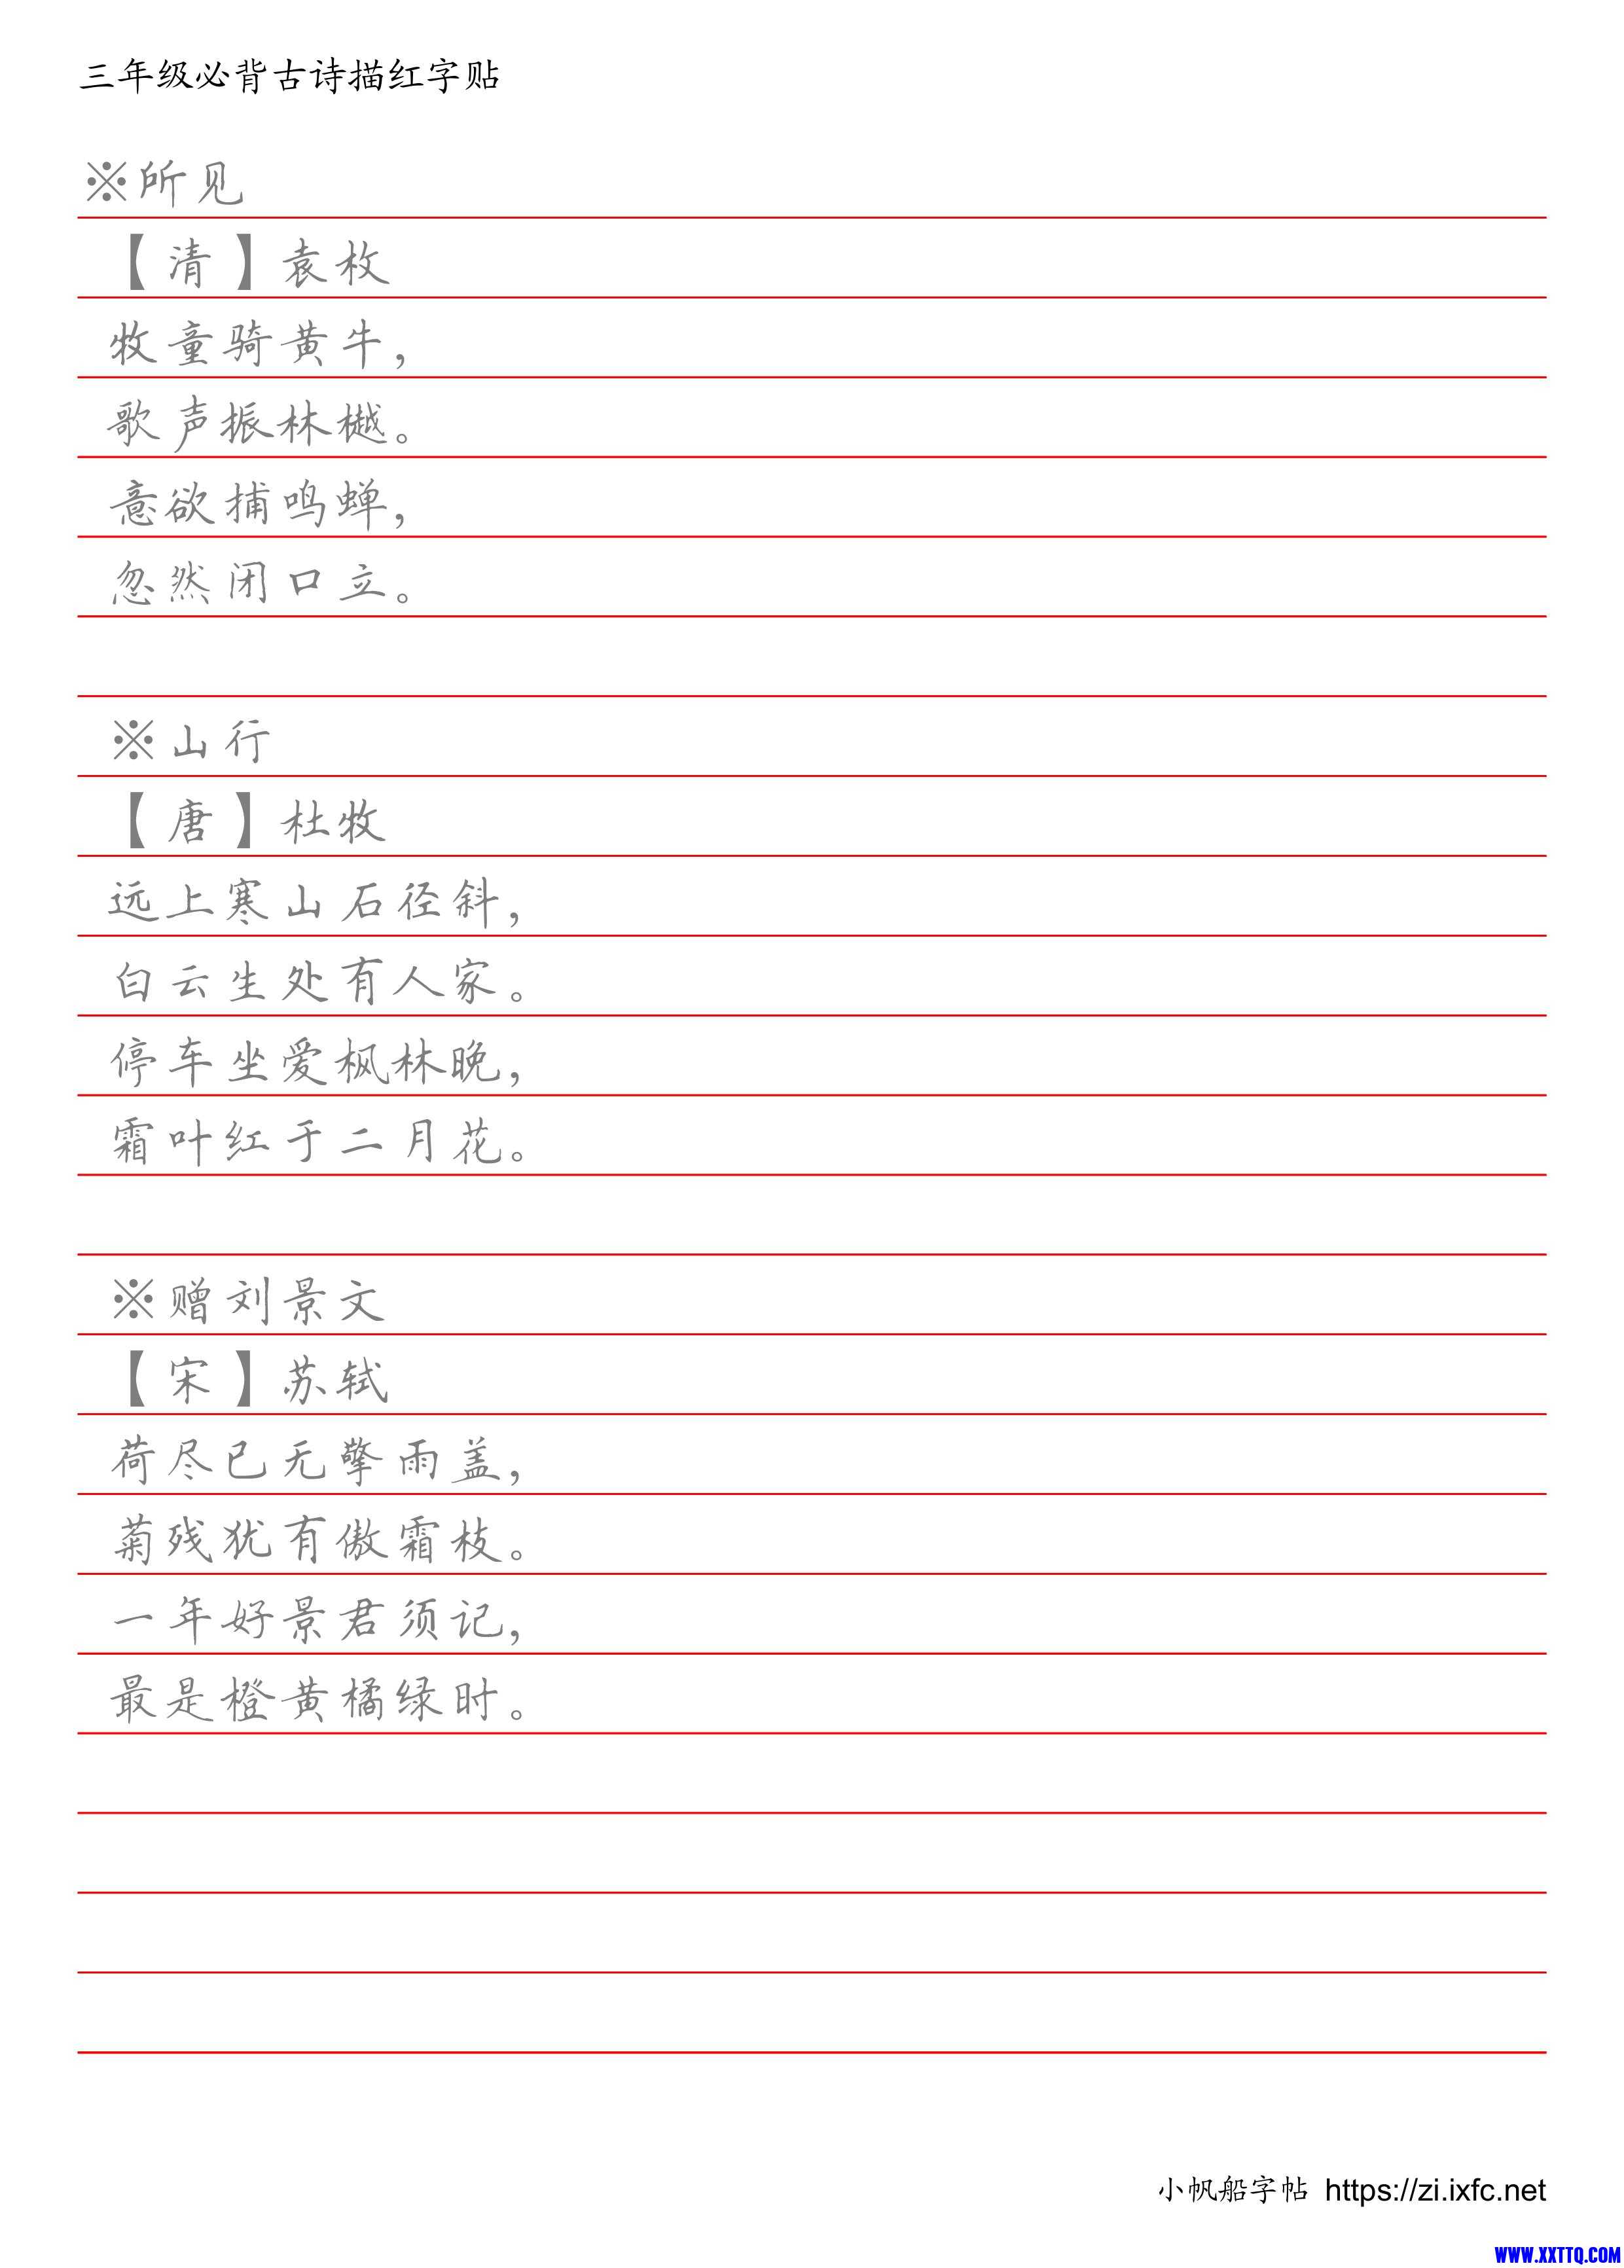 三年级必背古诗描红字贴
※所见
【清】袁枚
牧童骑黄牛，
歌声振林樾。
意欲捕鸣蝉，
忽然闭口立。
※山行
【唐】杜牧
远上寒山石径斜，
白云生处有人家。
停车坐爱枫林晚，
霜叶红于二月花。
※赠刘景文
【宋】苏轼
荷尽已无擎雨盖，
菊残犹有傲霜枝。
一年好景君须记，
最是橙黄橘绿时。
小帆船字帖 https://zi.ixfc.net
WWW.XXTTQ.COM